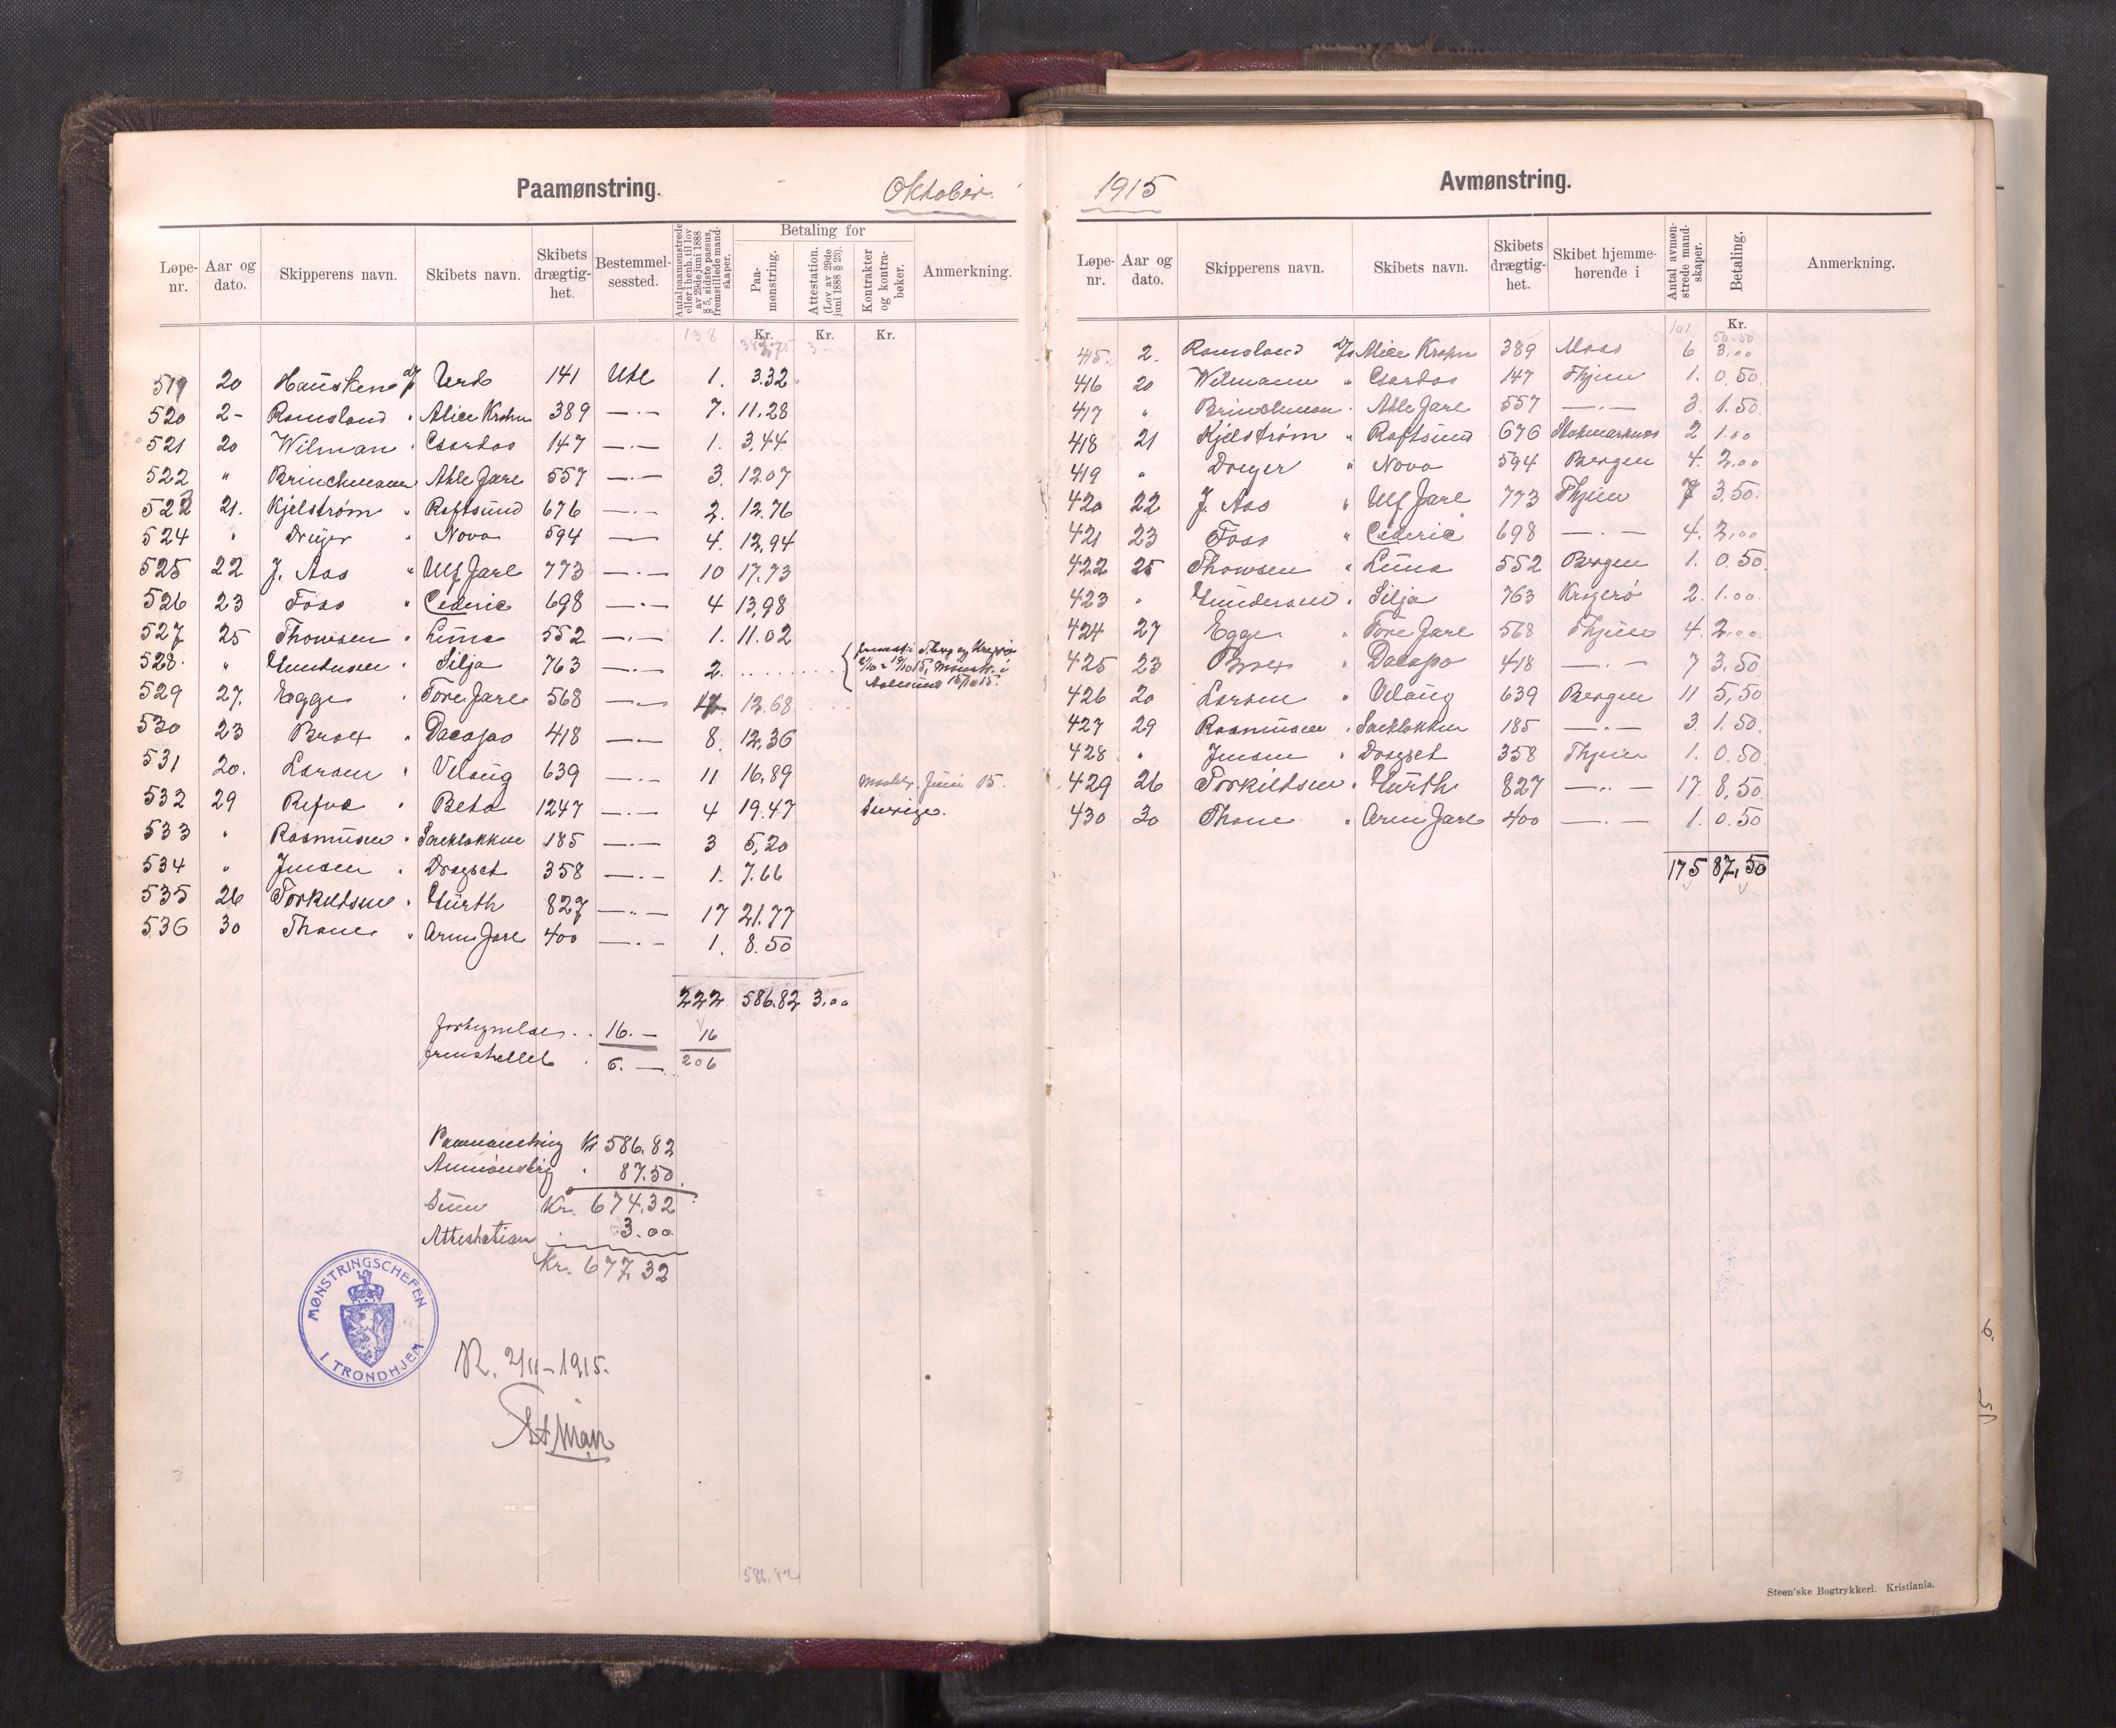 Paamønstring.
Oktober.
Løpe-nr. Aar og dato. Skipperens navn. Skibets navn. Skibets drægtig-het. Bestemmel-sessted. Antal paamønstrede eller i henh. til lov av 29de juni 1888 § 5, sidste passus, fremstillede mand-skaper. Betaling for Paa-mønstring. Attestation. (Lov av 29de juni 1888 § 23). Kontrakter og kontra-bøker. Anmerkning.
138 Kr. Kr. Kr.
519 20 Hausken D/s Uerd 141 Utl 1. 3.32
520 2- Ramsland " Alice Krohn 389 —.— 7. 11.28
521 20 Wilman " Csardas 147 —.— 1. 3,44
522 " Brinchmann Atle Jarl 557 —.— 3. 12.07
523 21. Kjelstrøm " Raftsund 676 —.— 2. 12.76
524 " Dreyer " Nova 594 — 4. 12,94
525 22 J. Aas " Ulf Jarl 773 —.— 10 17.73
526 23 Foss " Cederic 698 —.— 4 13,98
527 25 Thomsen " Luna 552 —.— 1. 11.02
528. " Gundersen " Silja 763 —.— 2.
529 27. Egge " Tore Jarl 568 —.— 12.68
530 23 Broex " Dacapo 418 —.— 8. 12,36
531 20. Larsen " Velaug 639 —.— 11 16.89 Juni 15.
532 29 Refvik " Beta 1247 —.— 4 19.47 Sverige.
533 " Rasmussen " Sneklokken 185 —.— 3 5,20
534 " Jensen " Dragset 358 —.— 1. 7.66
535 26 Torkildsen " Gurth 827 —"— 17 21.77
536 30 Thane " Arne Jarl 400 —.— 1. 8.50
222 586.82 3.00
Forhyrelse .. 16.— 16
Fremstillet . 6.— 206
Paamønstring Kr 586.82
Avmønstring " 87.50.
Sum Kr. 674.32
Attestation 3.00
Kr. 677.32
MØNSTRINGSCHEFEN I TRONDHJEM
R. 2/11-1915.
586.82
1915
Avmønstring.
Løpe-nr. Aar og dato. Skipperens navn. Skibets navn. Skibets drægtig-het. Skibet hjemme-hørende i Antal avmøn-strede mand-skaper. Betaling. Anmerkning.
101 Kr. 50.50
415. 2. Ramsland D/s Alice Krohn 389 Moss 6 3.00
416 20 Wilmann " Csardas 147 Thjem 1. 0.50
417 " Brinchmann " Atle Jarl 557 —.— 3. 1.50
418 21 Kjelstrøm " Raftsund 676 Stokmarknes 2 1.00
419 " Dreyer " Nova 594 Bergen 4. 2.00
420 22 J. Aas " Ulf Jarl 773 Thjem 7 3.50
421 23 Foss " Cederic 698 —.— 4. 2.00
422 25 Thomsen " Luna 552 Bergen 1. 0.50
423 " Gundersen " Silja 763 Kragerø 2. 1.00.
424 27 Egge " Tore Jarl 568 Thjem 4. 2.00
425 23 Broex " Dacapo 418 —.— 7 3.50
426 20 Larsen " Velaug 639 Bergen 11 5,50
427 29 Rasmussen " Sneklokken 185 —.— 3. 1.50.
428 " Jensen " Dragset 358 Thjem 1. 0.50
429 26 Torkildsen " Gurth 827 —..— 17. 8,50
430 30 Thane " Arne Jarl 400 —.— 1. 0.50
175 87,50
Steen'ske Bogtrykkeri. Kristiania.